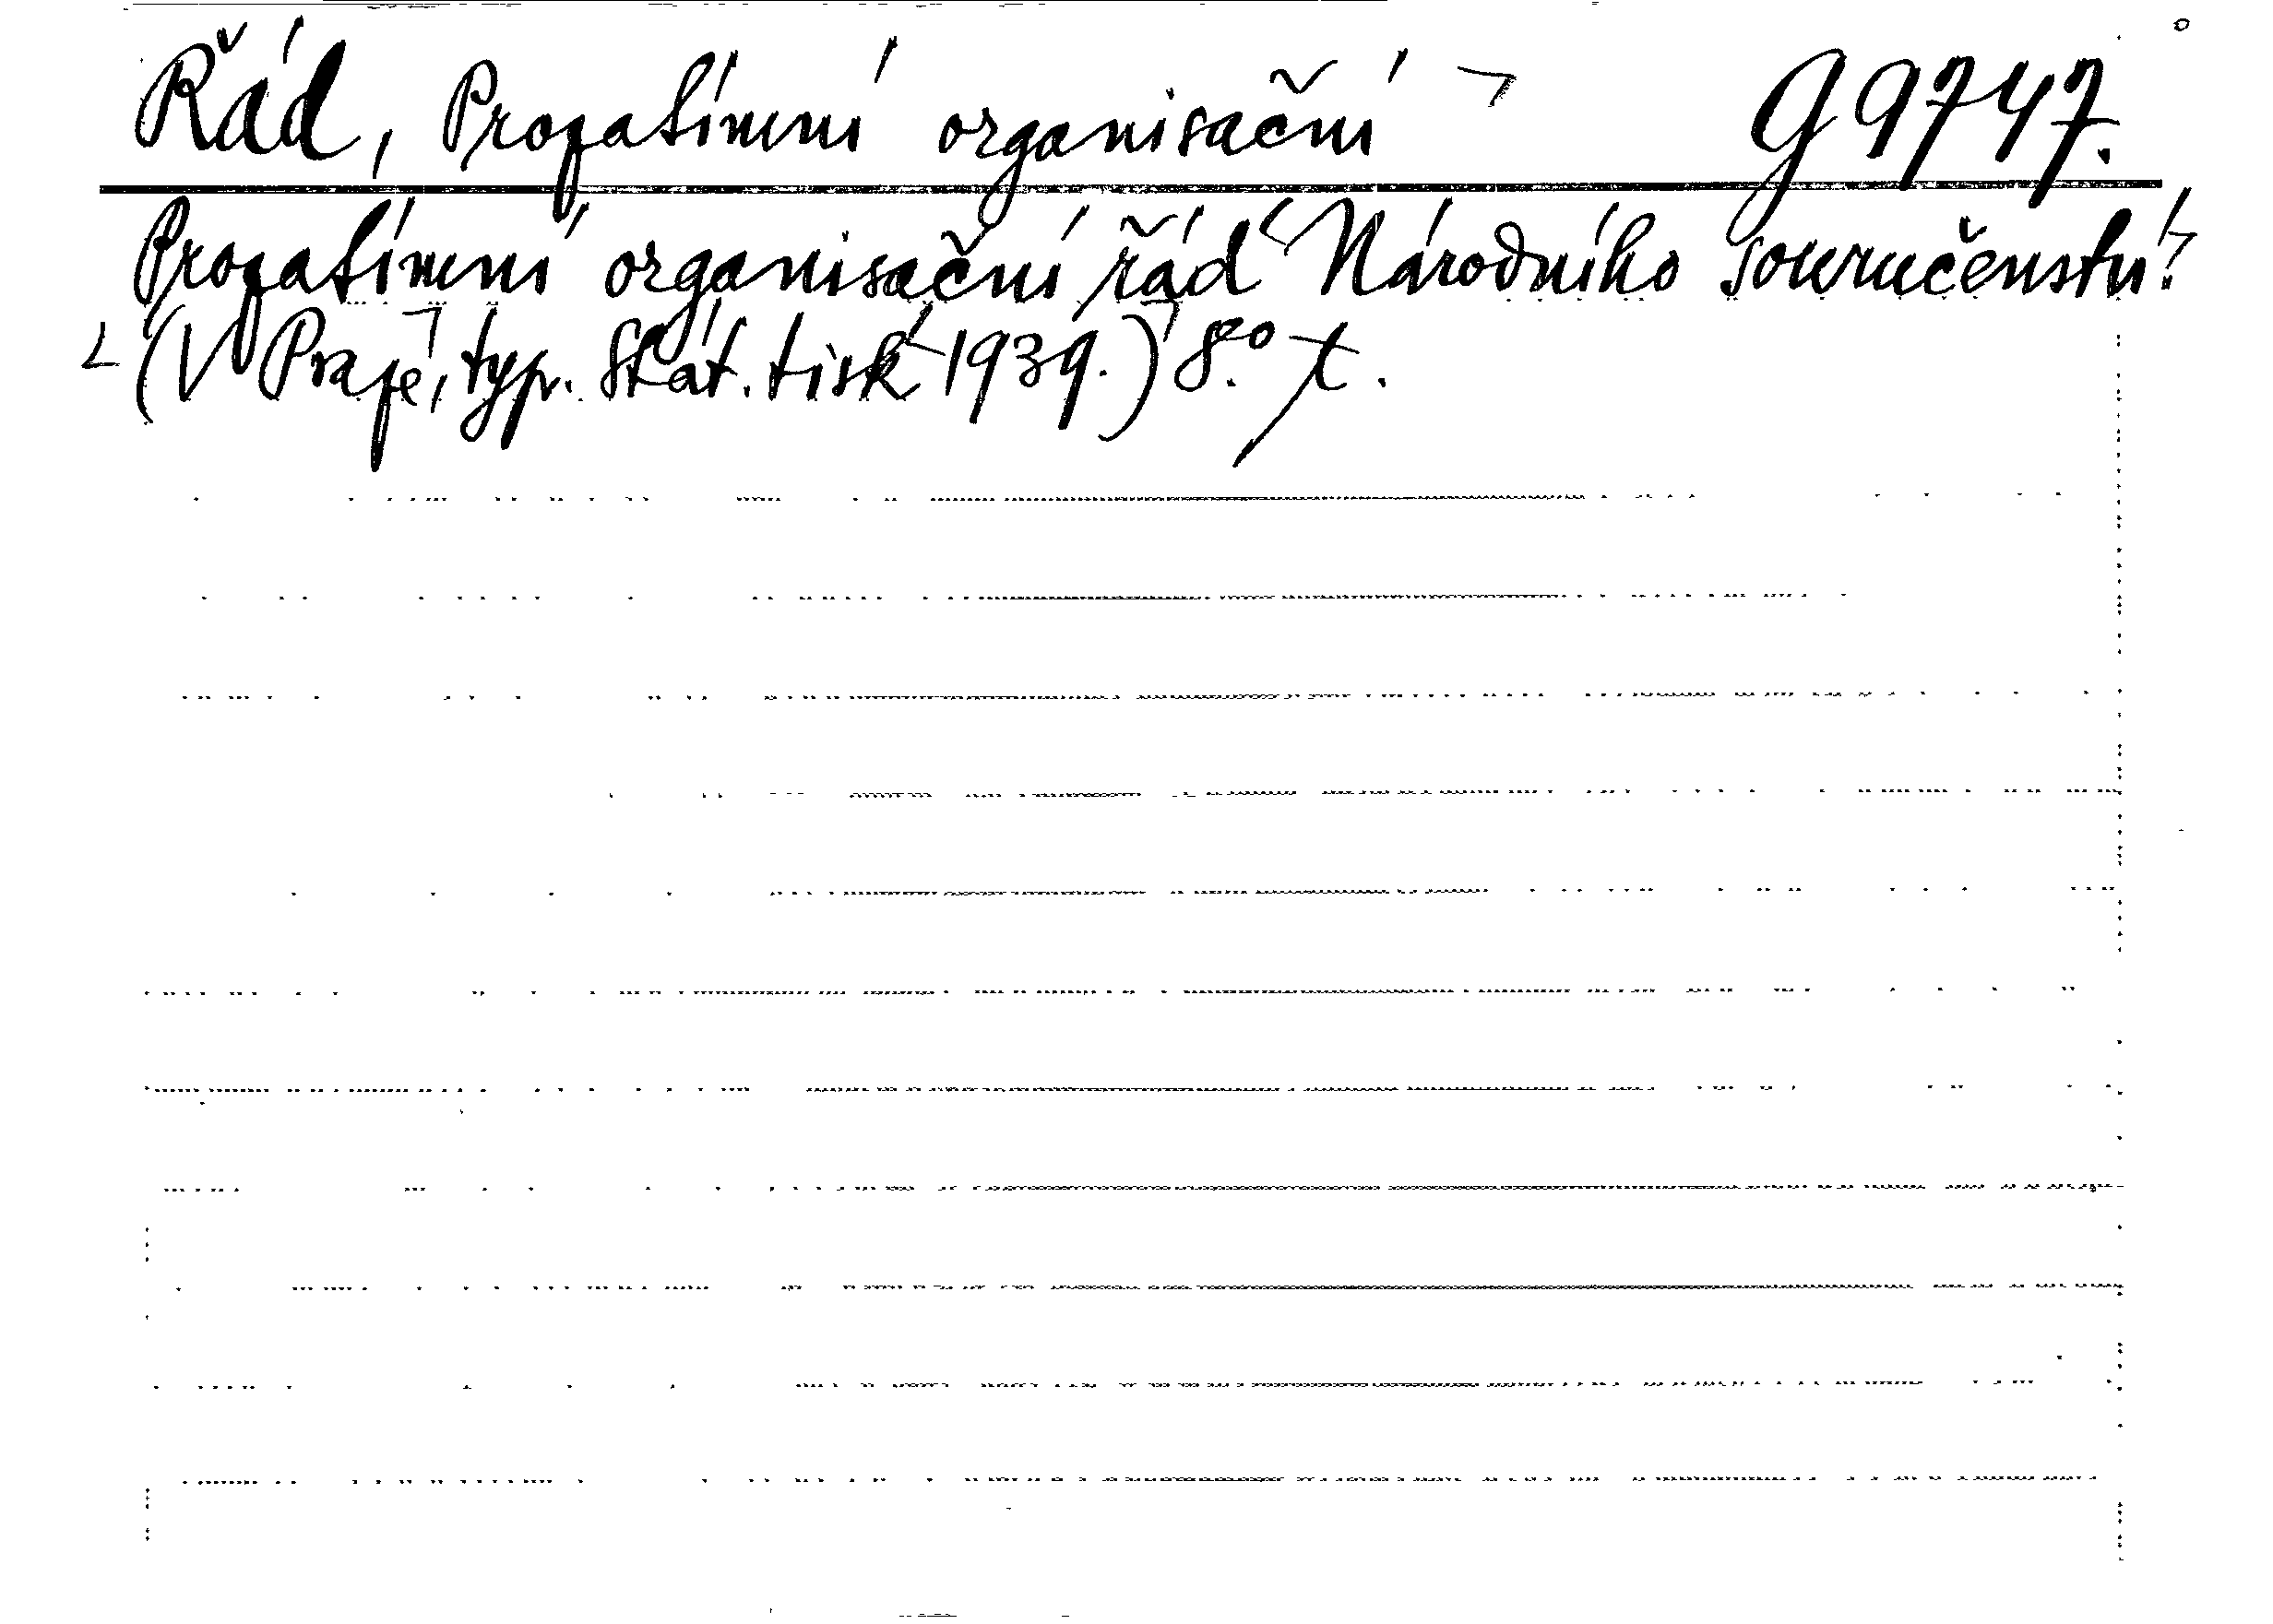 Řád, Prozatímní organisační ¬ G 9747.
Prozatímní organisační řád Národního souručenství.
(V Praze, typ. Stát. tisk. 1939.) 8.°